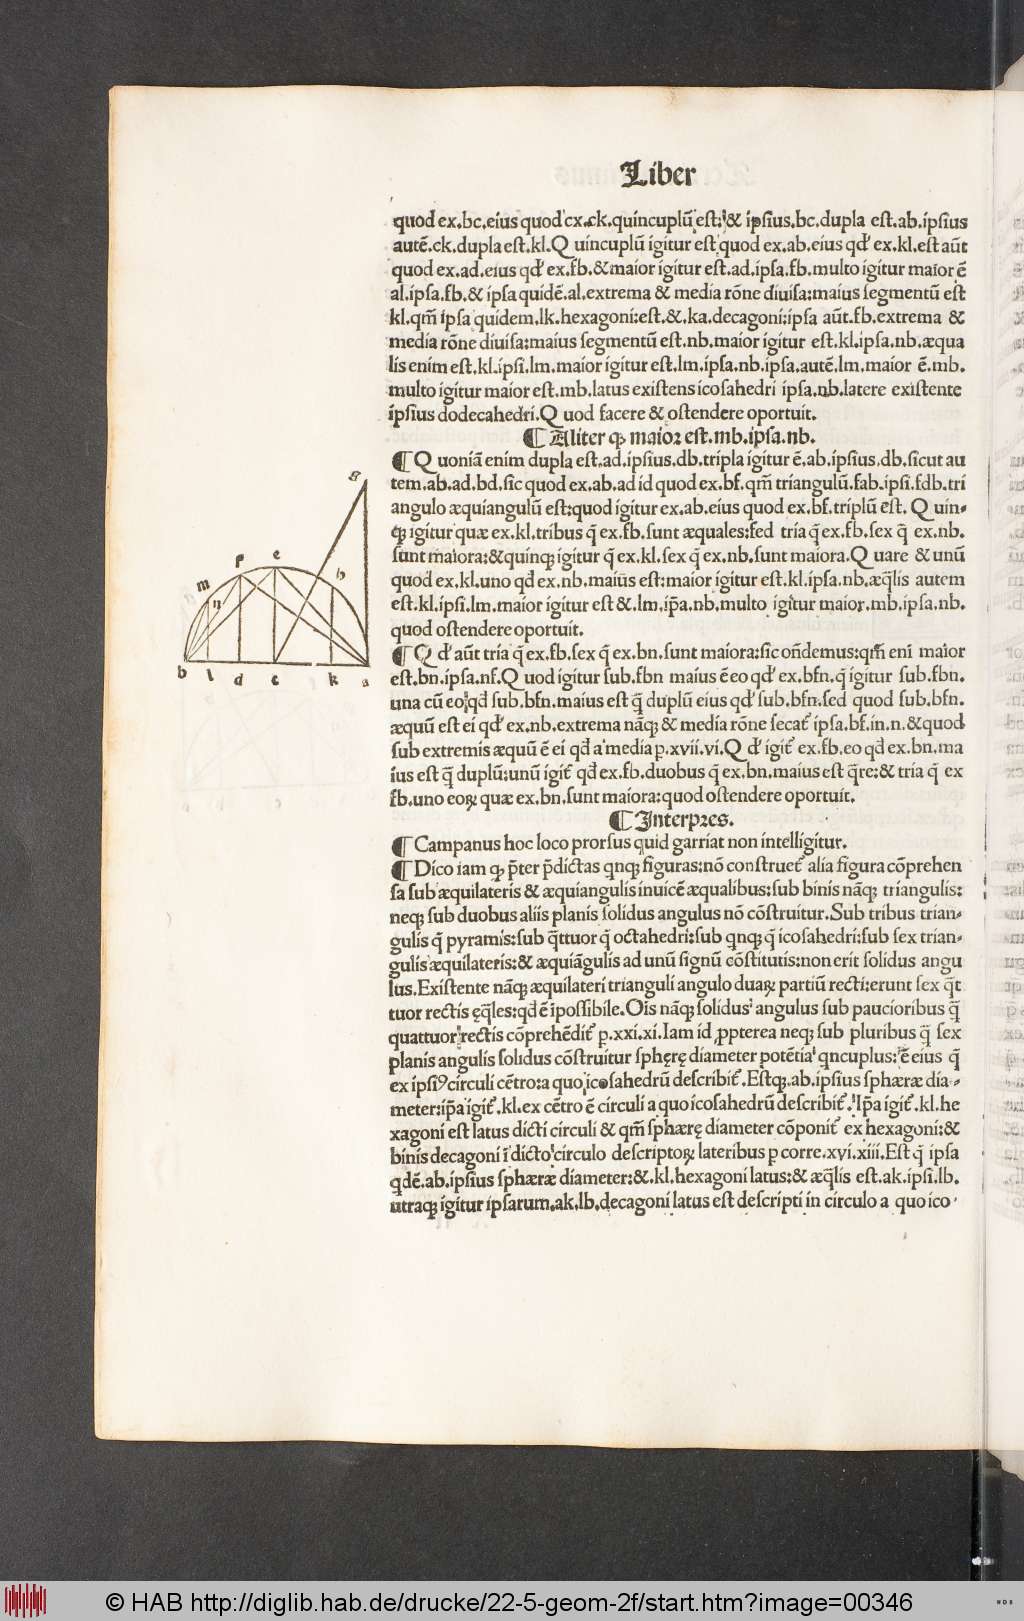 Liber
quod ex.bc.eius quod cx.ck.quincuplũ est:& ipsius.bc.dupla est.ab.ipsius
autẽ.ck.dupla est.kl.Q uincuplũ igitur est quod ex.ab.eius qđ ex.kl.est aũt
quod ex.ad.eius qđ ex.fb.& maior igitur est.ad.ipsa.fb.multo igitur maior ẽ
al.ipsa.fb.& ipsa quidẽ.al.extrema & media rõne diuisa:maius segmentũ est
kl.qm̃ ipsa quidem.lk.hexagoni:est.&.ka.decagoni:ipsa aũt.fb.extrema &
media rõne diuisa:maius segmentũ est.nb.maior igitur est.kl.ipsa.nb.æqua
lis enim est.kl.ipsi.lm.maior igitur est.lm.ipsa.nb.ipsa.autẽ.lm.maior ẽ.mb.
multo igitur maior est.mb.latus existens icosahedri ipsa.nb.latere existente
ipsius dodecahedri.Q uod facere & ostendere oportuit.
¶ Aliter ꝙ maior est.mb.ipsa.nb.
¶ Q uoniã enim dupla est.ad.ipsius.db.tripla igitur ẽ.ab.ipsius.db.sicut au
tem.ab.ad.bd.sic quod ex.ab.ad id quod ex.bf.qm̃ triangulũ.fab.ipsi.fdb.tri
angulo æquiangulũ est:quod igitur ex.ab.eius quod ex.bf.triplũ est. Q uin-
qꝫ igitur quæ ex.kl.tribus q̃ ex.fb.sunt æquales:sed tria q̃ ex.fb.sex q̃ ex.nb.
sunt maiora:& quinqꝫ igitur q̃ ex.kl.sex q̃ ex.nb.sunt maiora.Q uare & unũ
quod ex.kl.uno qđ ex.nb.maius est:maior igitur est.kl.ipsa.nb.æq̃lis autem
est.kl.ipsi.lm.maior igitur est &.lm.ip̃a.nb.multo igitur maior.mb.ipsa.nb.
quod ostendere oportuit.
¶ Q đ aũt tria q̃ ex.fb.sex q̃ ex.bn.sunt maiora:sic oñdemus:qm̃ eni maior
est.bn.ipsa.nf.Q uod igitur sub.fbn maius ẽ eo qđ ex.bfn.q̃ igitur sub.fbn.
una cũ eo qđ sub.bfn.maius est q̃ duplũ eius qđ sub.bfn.sed quod sub.bfn.
æquũ est ei qđ ex.nb.extrema nãqꝫ & media rõne secat̃ ipsa.bf.in.n.& quod
sub extremis æquũ ẽ ei qđ a media p.xvii.vi.Q đ igit̃ ex.fb.eo qđ ex.bn.ma
ius est q̃ duplũ:unũ igit̃ qđ ex.fb.duobus q̃ ex.bn.maius est q̃re:& tria q̃ ex
fb.uno eoꝝ quæ ex.bn.sunt maiora:quod ostendere oportuit.
¶ Interpres.
¶ Campanus hoc loco prorsus quid garriat non intelligitur.
¶ Dico iam ꝙ p̃ter p̃dictas qnqꝫ figuras:nõ construet̃ alia figura cõprehen
sa sub æquilateris & æquiangulis inuicẽ æqualibus:sub binis nãqꝫ triangulis:
neqꝫ sub duobus aliis planis solidus angulus nõ cõstruitur.Sub tribus trian-
gulis q̃ pyramis:sub q̃ttuor q̃ octahedri:sub qnqꝫ q̃ icosahedri:sub sex trian-
gulis æquilateris:& æquiãgulis ad unũ signũ cõstitutis:non erit solidus angu
lus.Existente nãqꝫ æquilateri trianguli angulo duaꝝ partiũ recti:erunt sex q̃t
tuor rectis ęq̃les:qđ ẽ ipossibile.Ois nãqꝫ solidus angulus sub paucioribus q̃
quattuor rectis cõprehẽdit̃ p.xxi.xi.Iam id ꝓpterea neqꝫ sub pluribus q̃ sex
planis angulis solidus cõstruitur sphęrę diameter potẽtia qncuplus:ẽ eius q̃
ex ipsiꝰ circuli cẽtro:a quo icosahedrũ describit̃.Estqꝫ.ab.ipsius sphæræ dia-
meter:ip̃a igit̃.kl.ex cẽtro ẽ circuli a quo icosahedrũ describit̃.Ip̃a igit̃.kl.he
xagoni est latus dicti circuli & qm̃ sphærę diameter cõponit̃ ex hexagoni:&
binis decagoni ĩ dicto circulo descriptoꝝ lateribus p corre.xvi.xiii.Est q̃ ipsa
qdẽ.ab.ipsius sphæræ diameter:&.kl.hexagoni latus:& æq̃lis est.ak.ipsi.lb.
utraqꝫ igitur ipsarum.ak,lb.decagoni latus est descripti in circulo a quo ico
g
e
p
h
m
n
b
l
d
c
k
a
© HAB http://diglib.hab.de/drucke/22-5-geom-2f/start.htm?image=00346